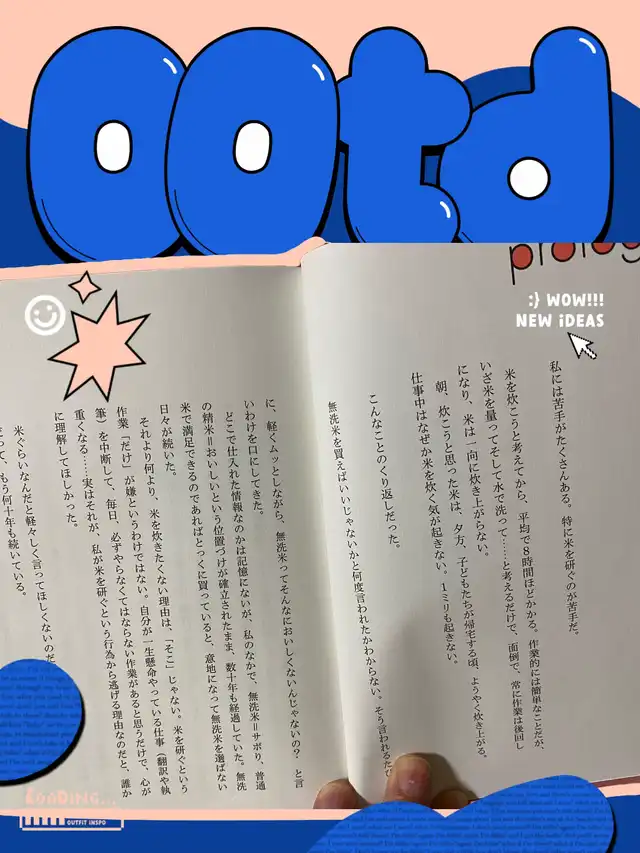 ootd
prolog
:} WOW!!!
NEW iDEAS
私には苦手がたくさんある。特に米を研ぐのが苦手だ。
米を炊こうと考えてから、平均で8時間ほどかかる。作業的には簡単なことだが、
いざ米を量ってそして水で洗って……と考えるだけで、面倒で、常に作業は後回し
になり、米は一向に炊き上がらない。
朝、炊こうと思った米は、夕方、子どもたちが帰宅する頃、ようやく炊き上がる。
仕事中はなぜか米を炊く気が起きない。1ミリも起きない。
こんなことのくり返しだった。
無洗米を買えばいいじゃないかと何度言われたかわからない。そう言われるたび
に、軽くムッとしながら、無洗米ってそんなにおいしくないんじゃないの？　と言
いわけを口にしてきた。
どこで仕入れた情報なのかは記憶にないが、私のなかで、無洗米＝サボり、普通
の精米＝おいしいという位置づけが確立されたまま、数十年も経過していた。無洗
米で満足できるのであればとっくに買っていると、意地になって無洗米を選ばない
日々が続いた。
それより何より、米を炊きたくない理由は、「そこ」じゃない。米を研ぐという
作業「だけ」が嫌というわけではない。自分が一生懸命やっている仕事（翻訳や執
筆）を中断して、毎日、必ずやらなくてはならない作業があると思うだけで、心が
重くなる……実はそれが、私が米を研ぐという行為から逃げる理由なのだと、誰か
に理解してほしかった。
米ぐらいなんだと軽々しく言ってほしくないのだ
って、もう何十年も続いている。
LOADING...
OUTFIT INSPO